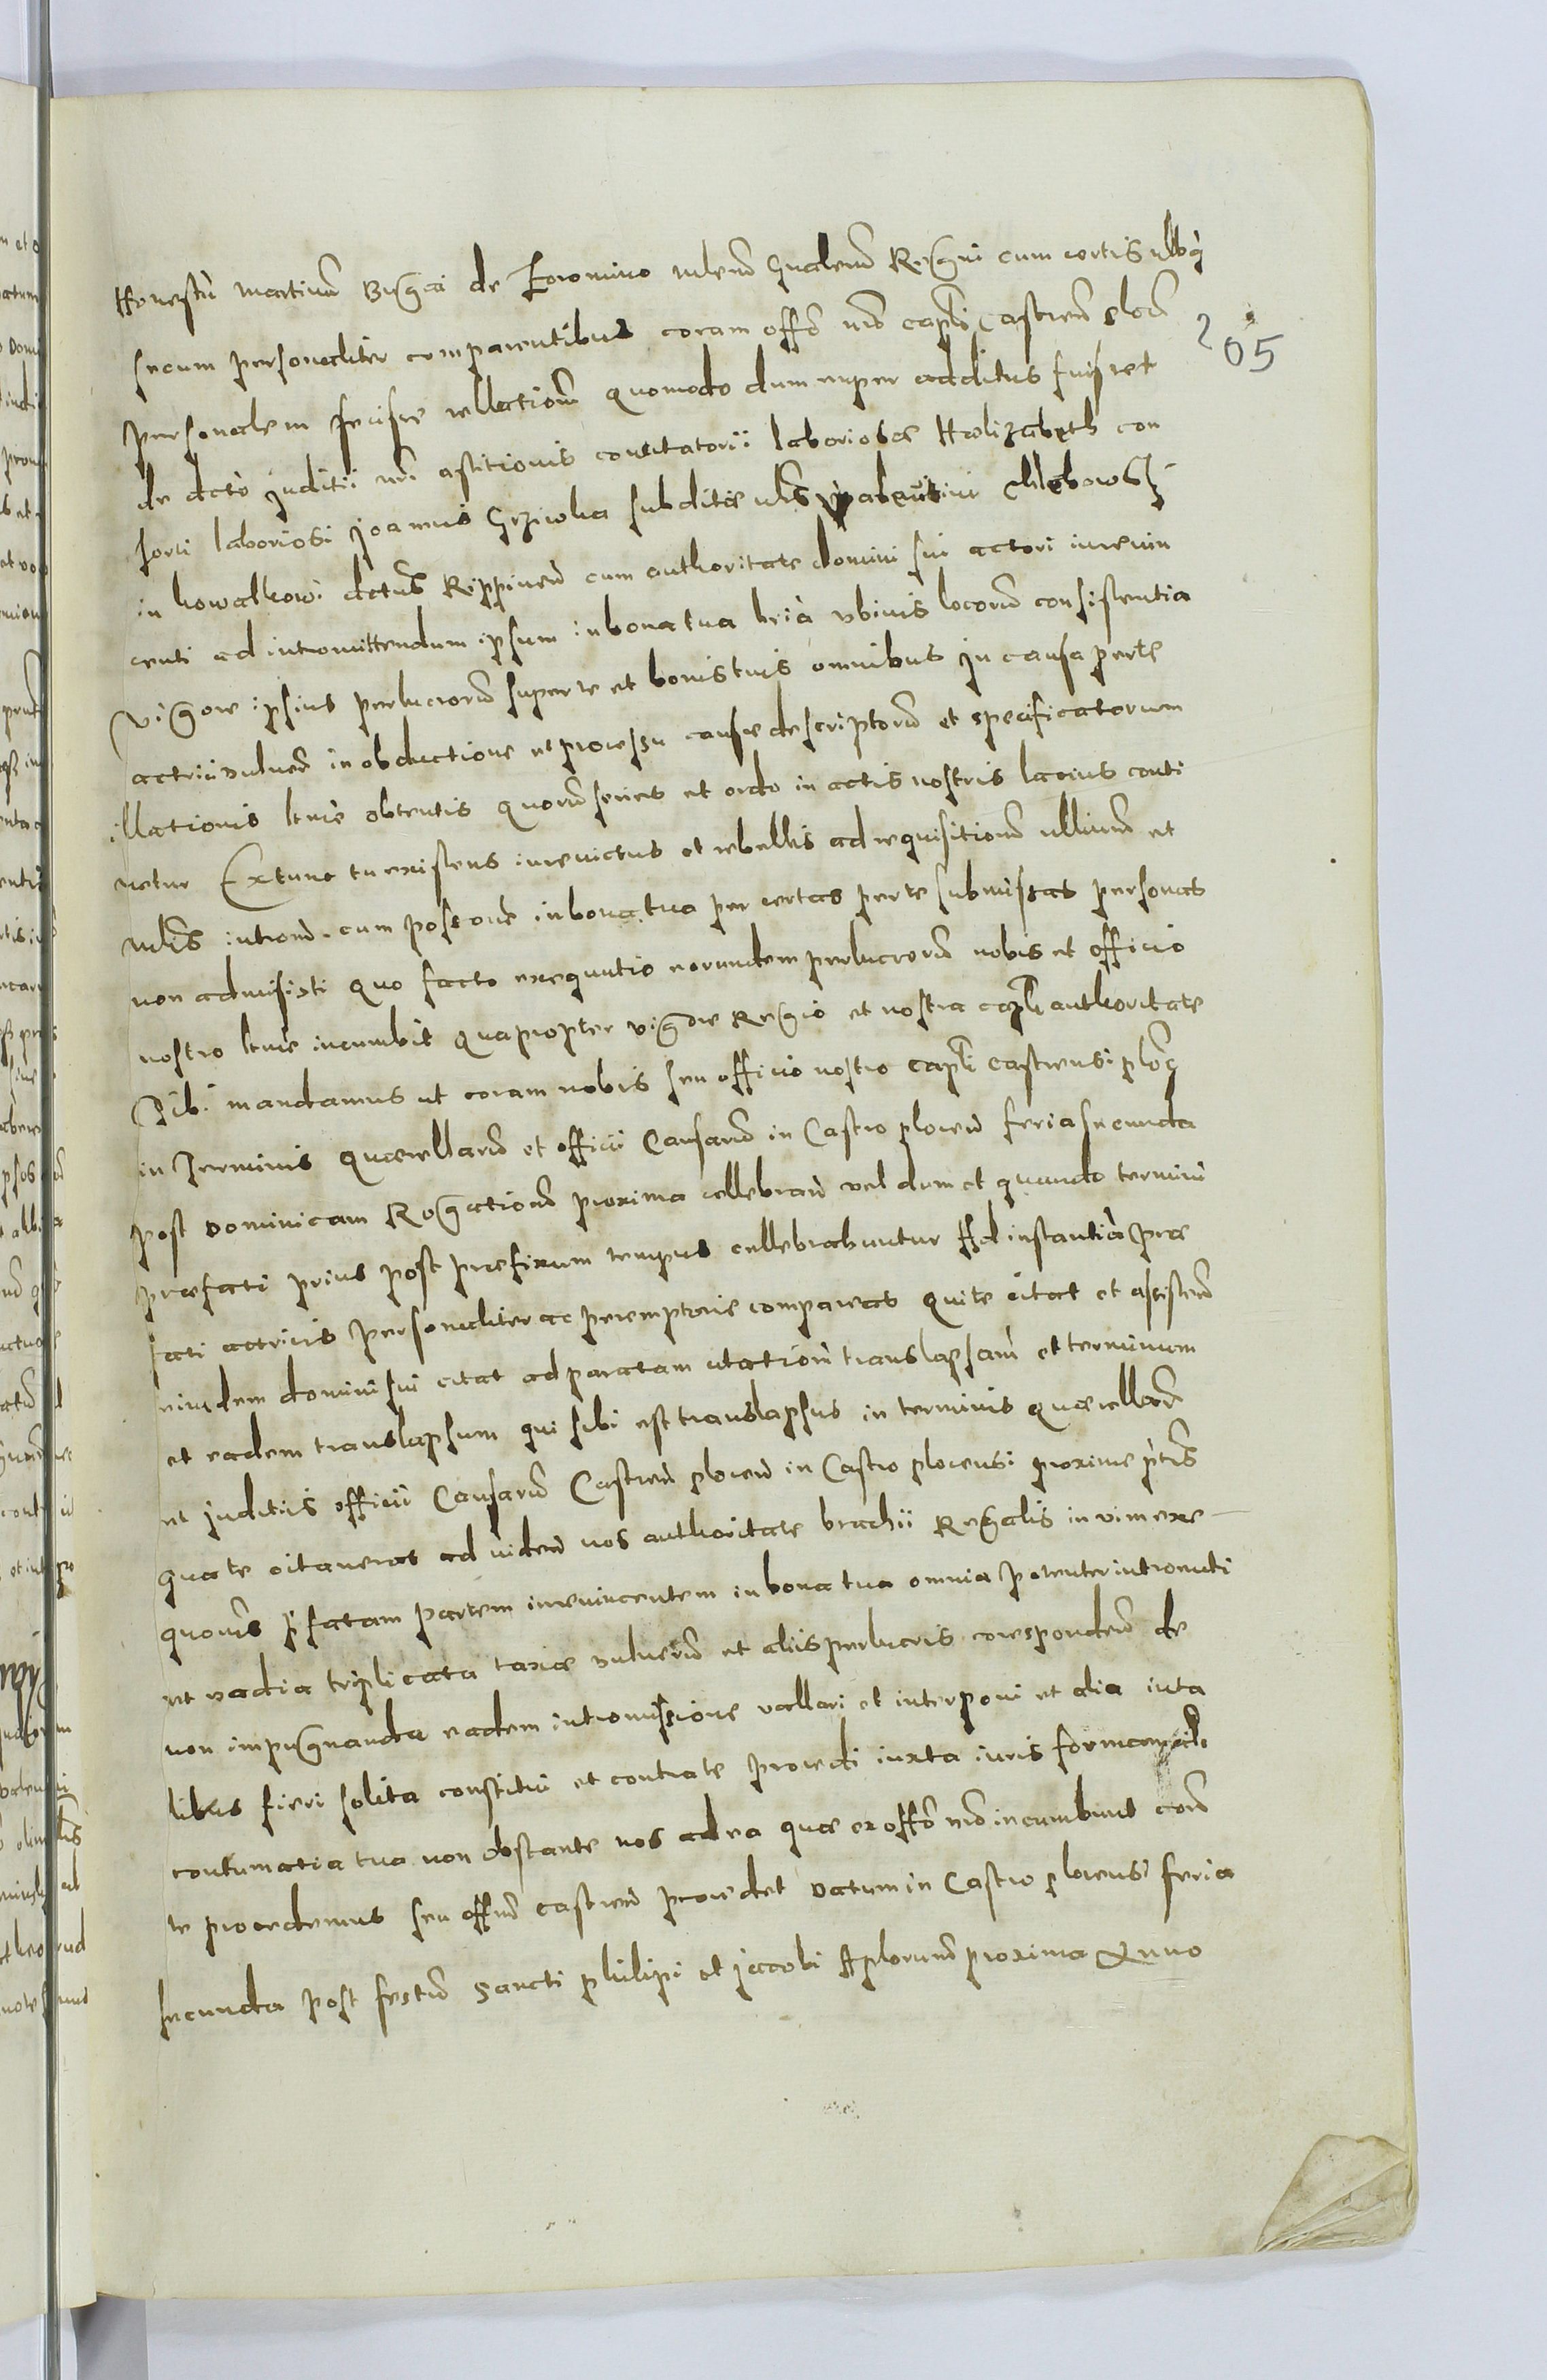 Honestū Martinū Bugai de Loromino mlem Gnalem Regni cum certis nllbȝ
secum personaliter comparentibus coram offō nrō capli castren ploc̄
205
personalem fecisse rellationē quomodo dum nuper additus fuisset
de actō juditii nrī astitionis concitatorii laboriosæ Halizabeth con
sorti laboriosi Joannis Grziwka subditæ nlis Valentini Chlebowsk
in kowalkowi dctus Rippinen cum authoritate domini sui actori inevin
centi ad intromittendum ipsum in bona tua hrīa ubivis locorū consistentia
vigore ipsius perlucrorū super te et bonis tuis omnibus in causa per te
actrici vulnerū in obductione et processu causæ descriptorū et specificatorum
illationis ltmē obtentis quorū series et ordo in actis nostris latius conti
netur Extunc tu existens inevictus et rebellis ad requisitionē et
nlis introm. cum possone in bona tua per certas per te submissas personas
non admisisti quo facto exequutio eorundem perlucrorū nobis et officio
nostro ltmē incumbit quapropter vigore Regio et nostra capli authoritate
Tibi mandamus ut coram nobis seu officio nostro capli castrensi ploc
in Terminis quærellarū et officii Causarū in Castro plocen feria secunda
post dominicam Rogationū proxima cellebran vel dum et quando termini
præfati prius post præfixum tempus cellebrabuntur Ad instantiā præ
fati actricis personaliter ac peremptorie compareas quite citat et assisten
eiusdem domini sui citat ad paratam citationē translapsam et terminum
ex eadem translapsum qui sibi est translapsus in terminis quærellarū
et juditiis officii Causarū Castren plocen in Castro plocensi proxime ptris
qua te citaneras ad viden nos authoritate brachii Regalis in vim exe
qutionis pfatam partem inevincentem in bona tua omnia potenter intromitti
et vadia triplicata taxæ vulnerū et aliis perlucris coresponden de
non impugnanda eadem intromissione vallari et interponi et alia in ta
libus fieri solita constitui et contra te procedi iuxta iuris formam
contumatia tua non obstante nos ad ea quæ ex offō nrō incumbunt con
te procedemus seu offm castren procedet Datum in Castro plocensi feria
secunda post festū Sancti philipi et Jacobi Aplorum proxima Anno